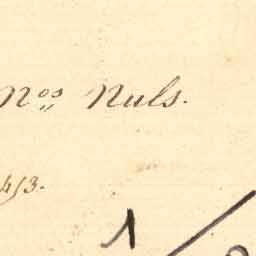 Nos Nuls.
453.
1/